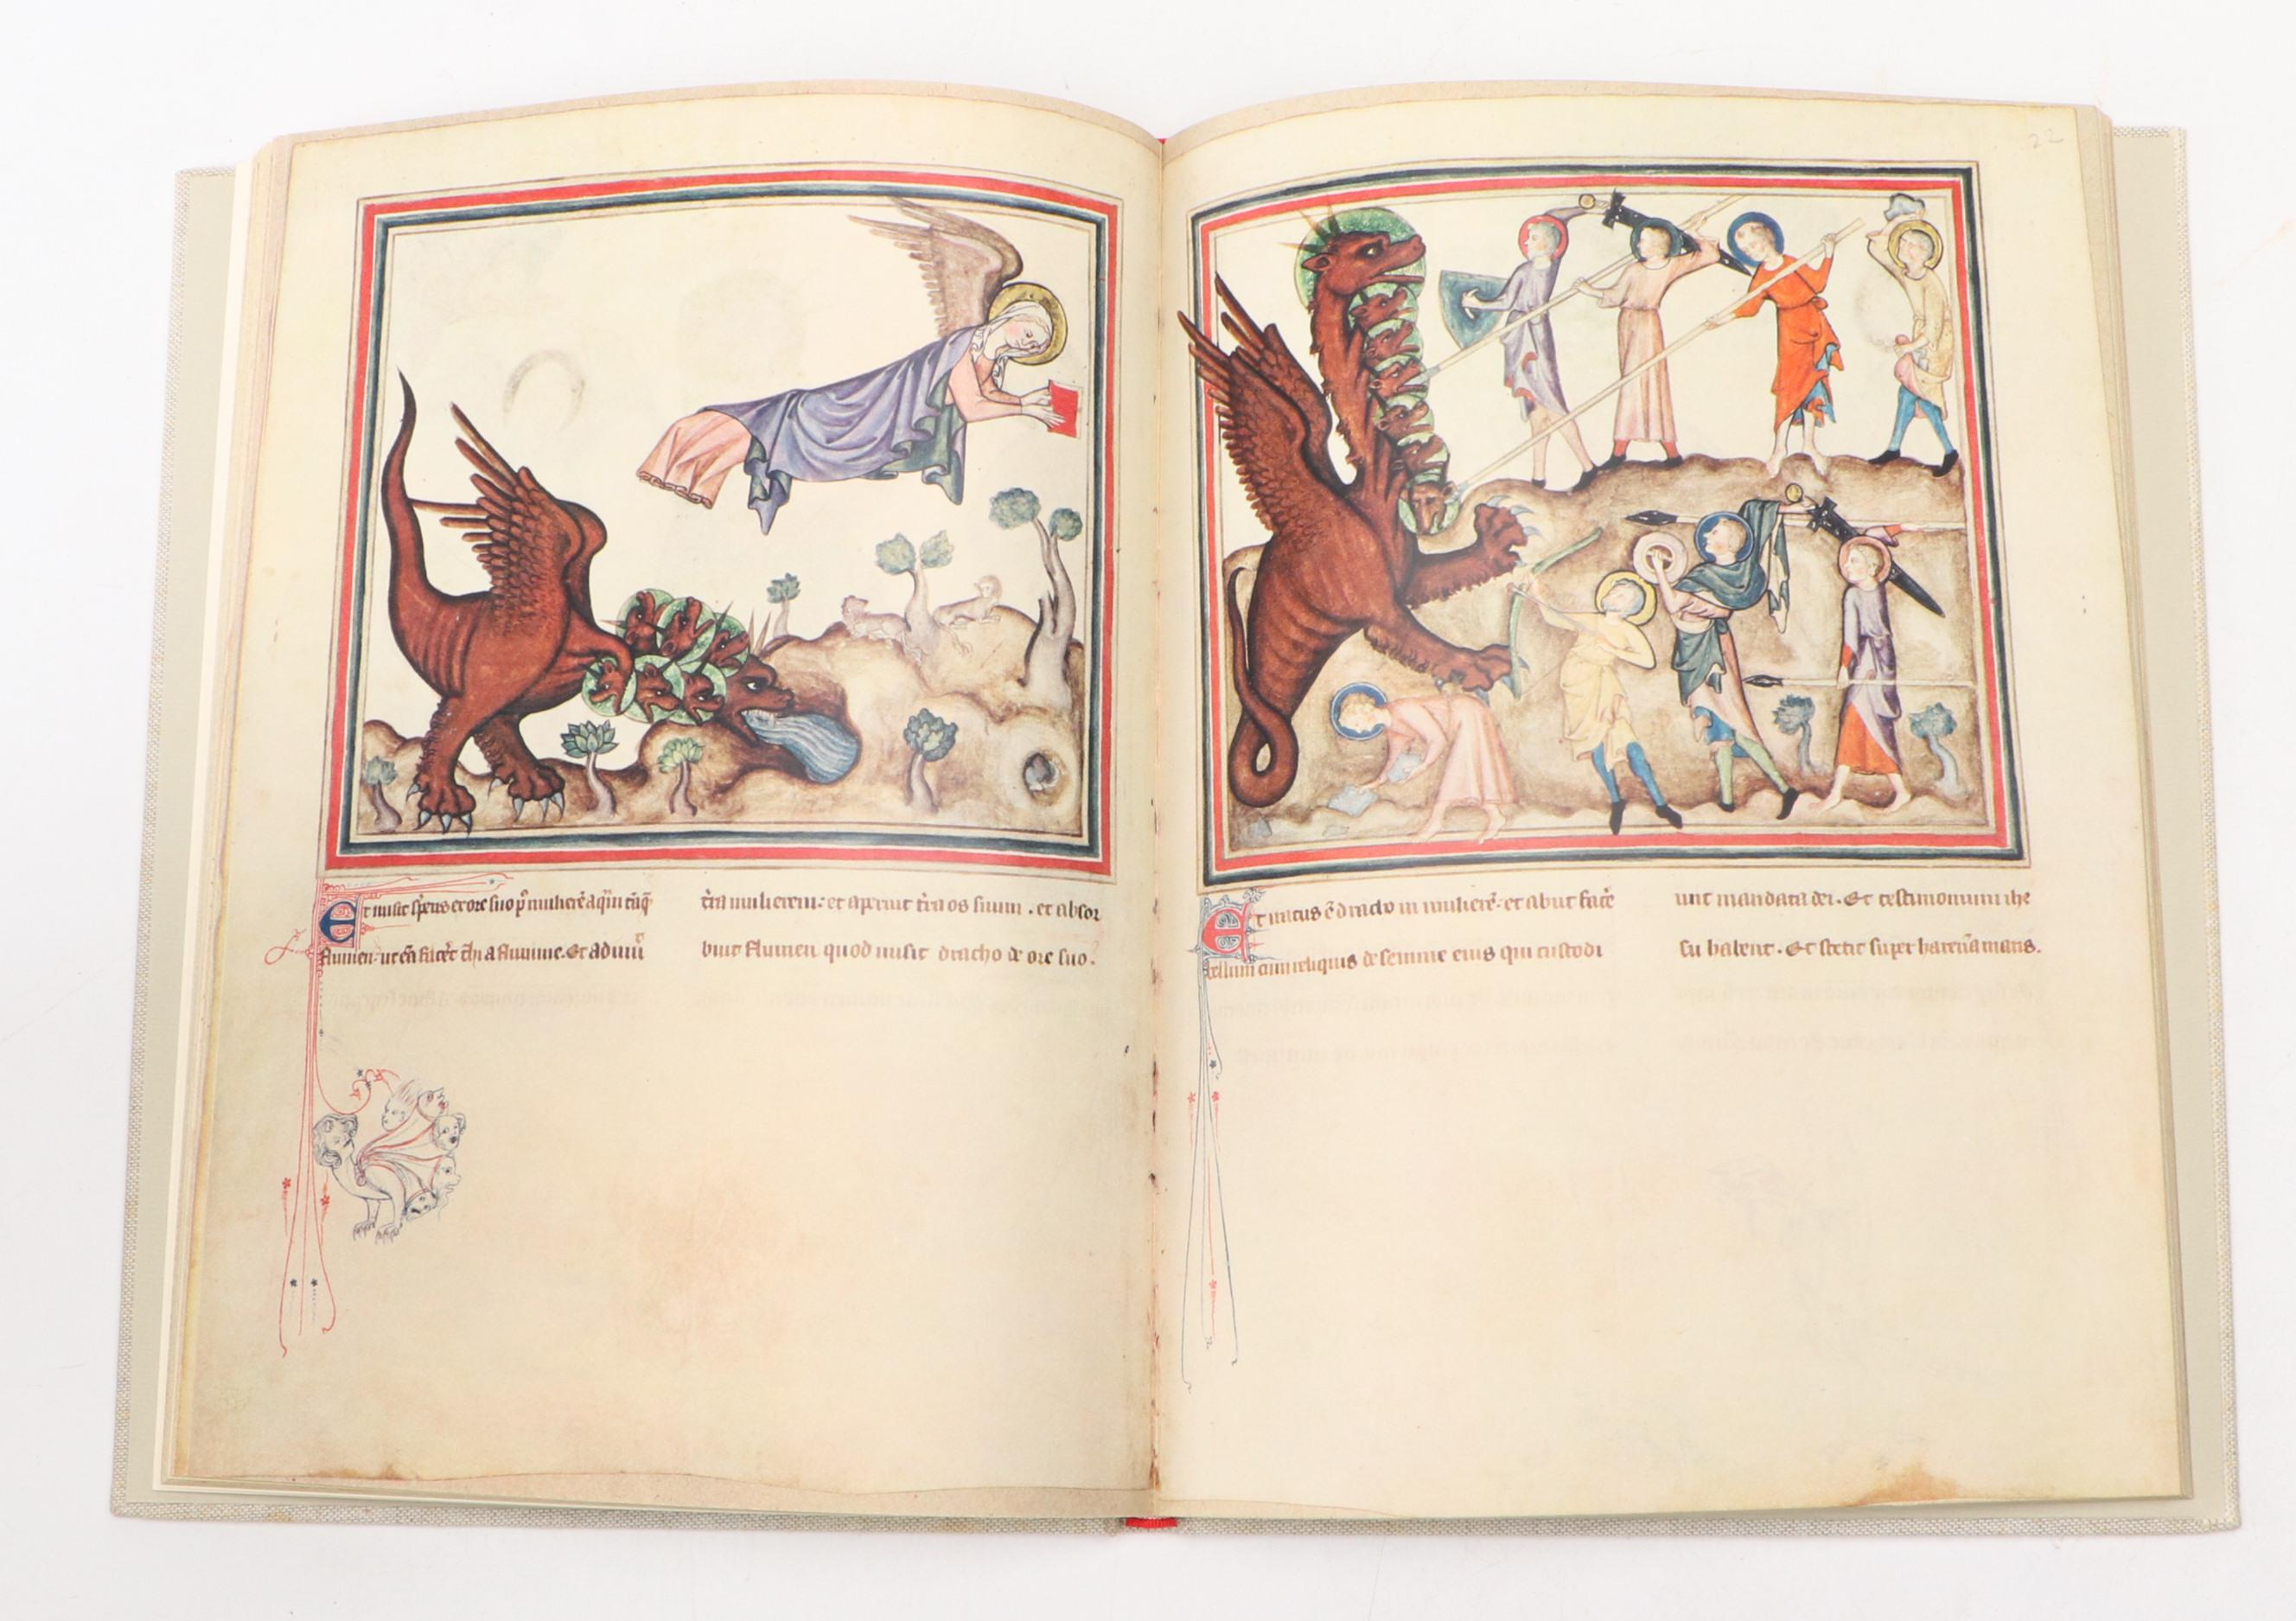 22
Et misit sp̄ens ex ore suo p̄ mulierē aq̄m tāq̄
flumen: ut eā facēt thi a flumine. Et adiuuı̄
t̄ra mulierem: et aperuit t̄ra os suum. et absor
buit flumen quod misit dracho de ore suo.
Et iratus ē draco in mulierē: et abiit facē
bellum cum reliquis de semine eius qui custodi
unt mandata dei. Et testimonium ihe
su habent. Et stetit super harenā maris.